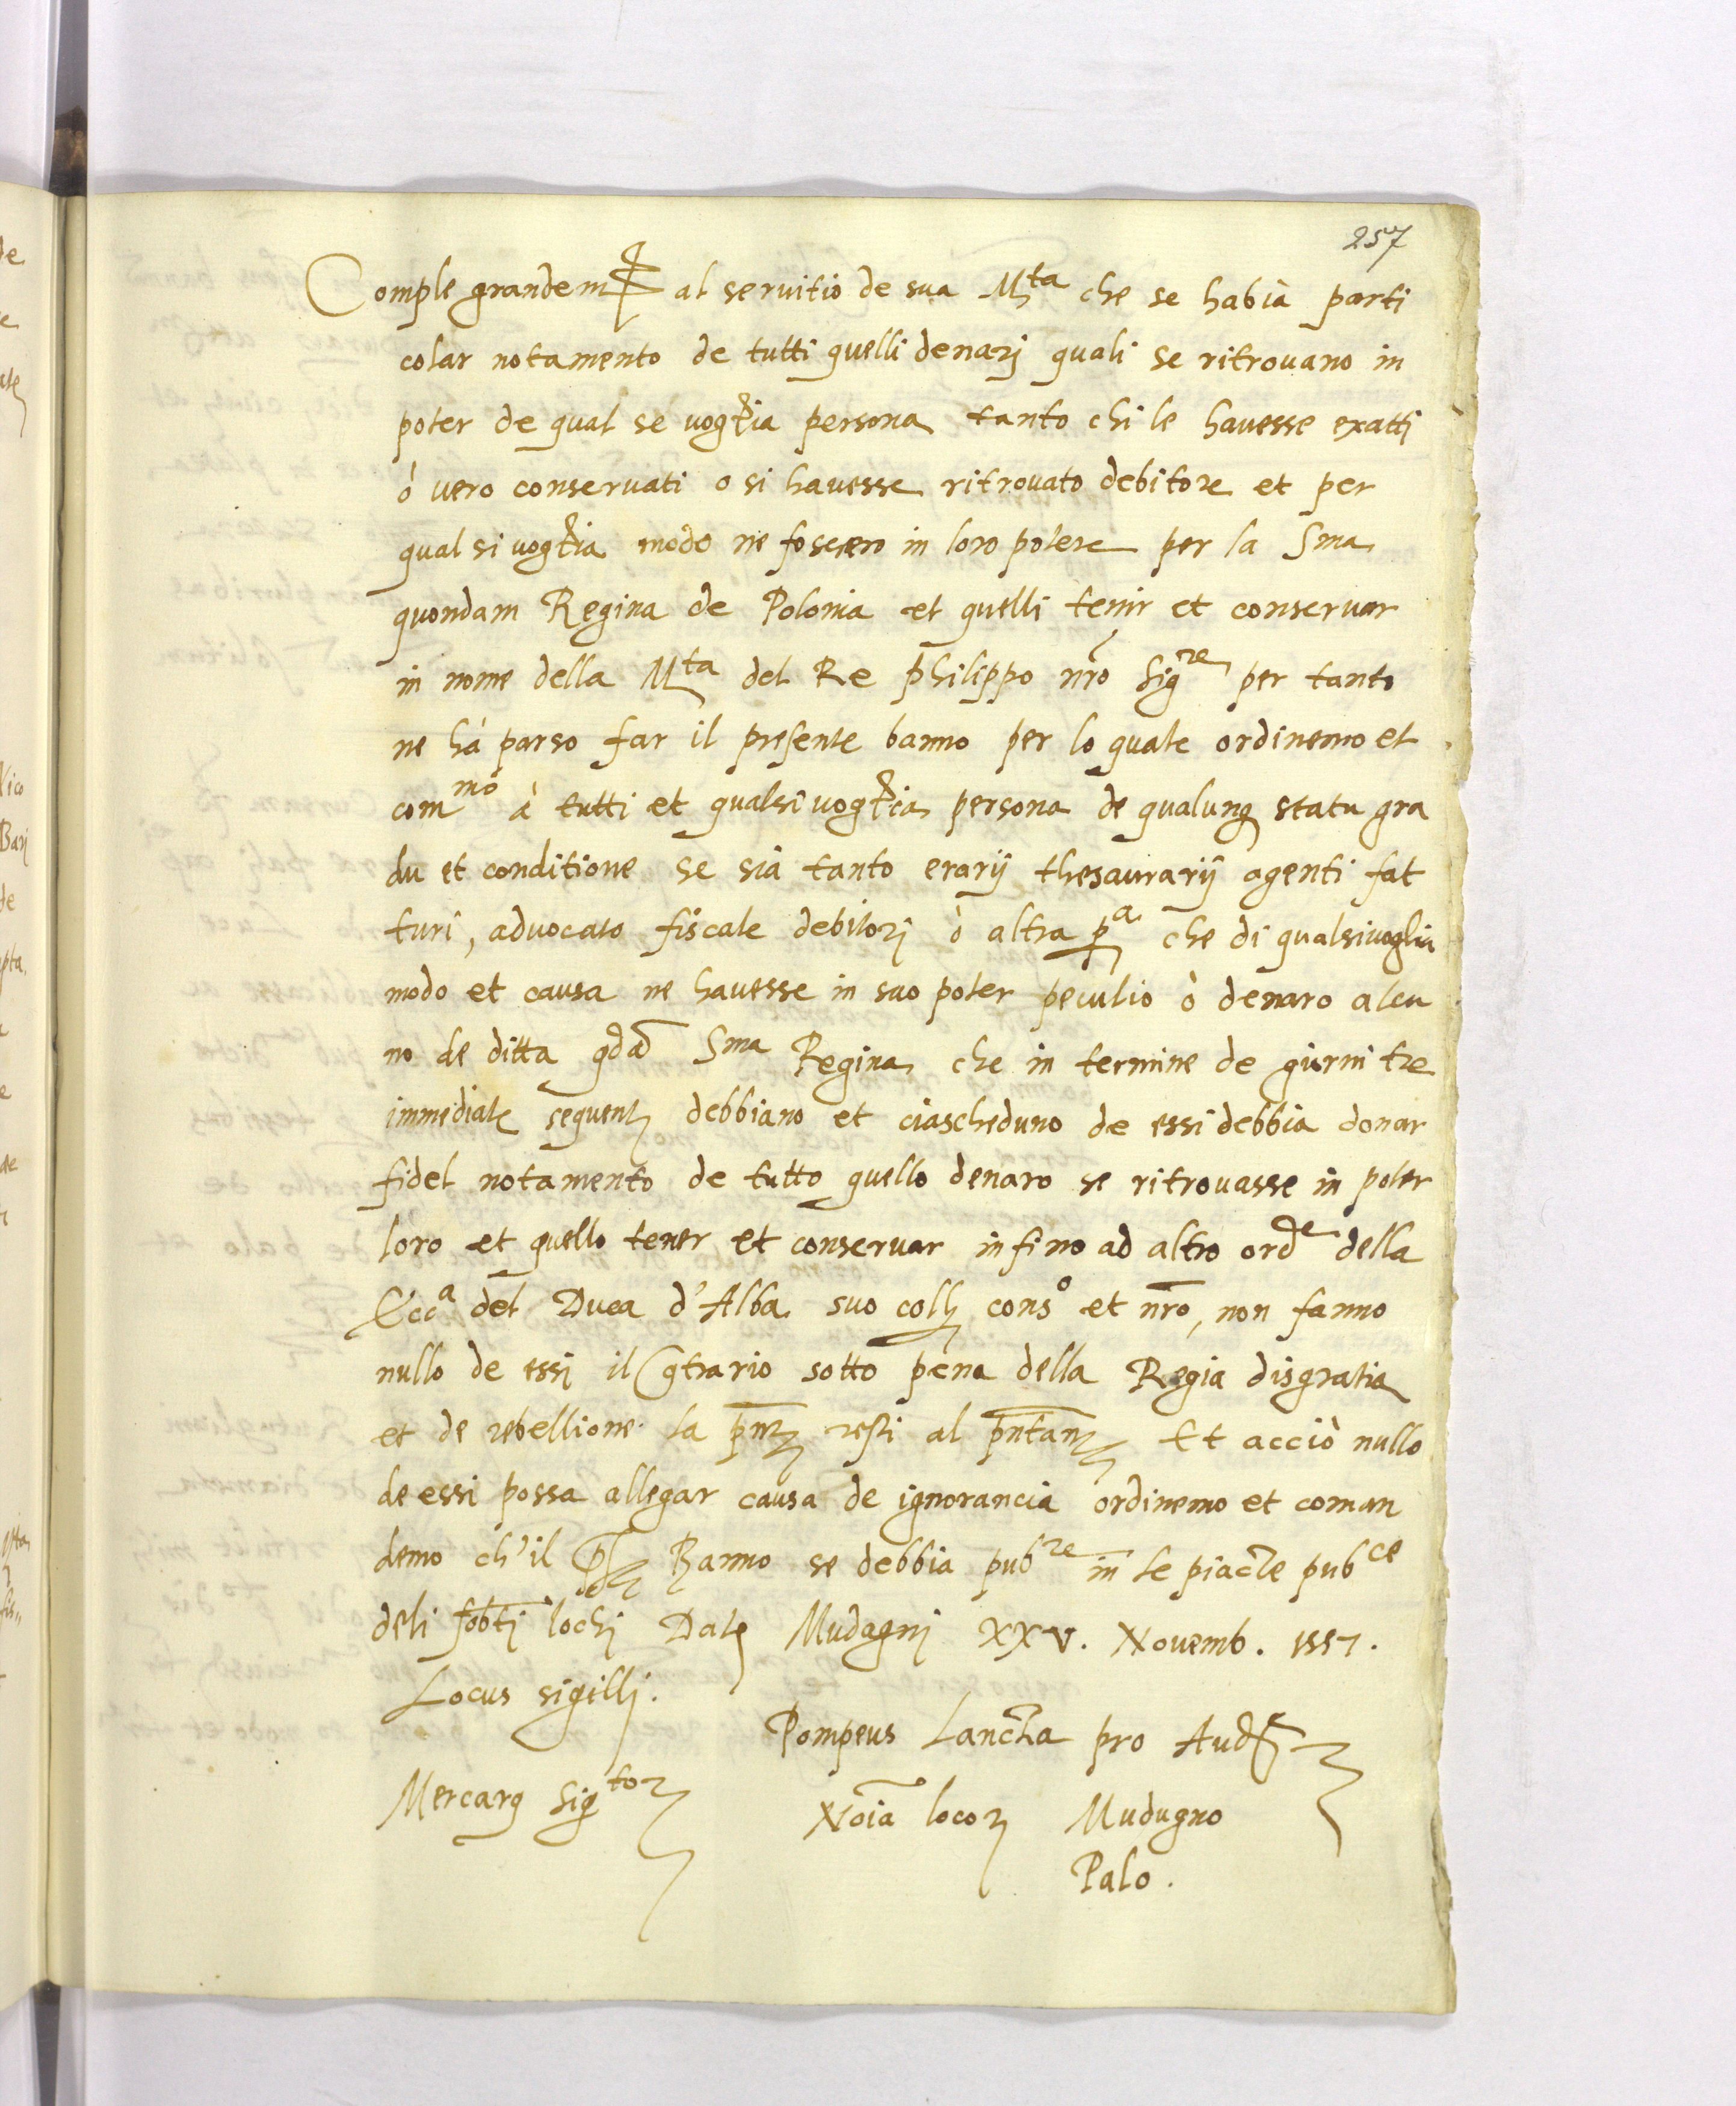 257
Comple grandem^te al servitio de sua M^ta che se habia parti
colar notamento de tutti quelli denarj quali se ritrovano in
poter de qual se voglia persona tanto chi le havesse exatti
ò vero conservati o si havesse ritrovato debitore et per
qual si voglia modo ne fossero in loro potere per la Sma
quondam Regina de Polonia et quelli tenir et conservar
in nome della M^ta del Re philippo nr̃o Sig^re per tanto
ne hà parso far il presente banno per lo quale ordinemo et
com^mo à tutti et qualsivoglia persona de qualunq statu gra
du et conditione se sia tanto erarij thesaurarij agenti fat
turi, advocato fiscale debitorj ò altra p^a che di qualsivoglia
modo et causa ne havesse in suo poter peculio ò denaro alcu
no de ditta qda Sma Regina che in termine de giorni tre
immediate sequenti debbiano et ciascheduno de essi debbia donar
fidel notamento de tutto quello denaro se ritrovasse in poter
loro et quello tener et conservar in fino ad altro ord^e della
Ecc^a del Duca d'Alba suo coll cons^o et nr̃o, non fanno
nullo de essi il ctrario sotto pena della Regia disgratia
et de rebellione la pñte resti al pñtante Et acciò nullo
de essi possa allegar causa de ignorancia ordinemo et coman
demo ch'il Banno se debbia pub^re in le piacze pub^ce
deli lochi Date Mudugnj XXV. Novemb. 1557.
Locus sigillj.
Pompeus Lancza pro Aud^re
Mercarg sig^tor
Nõia locor Mudugno
Palo.